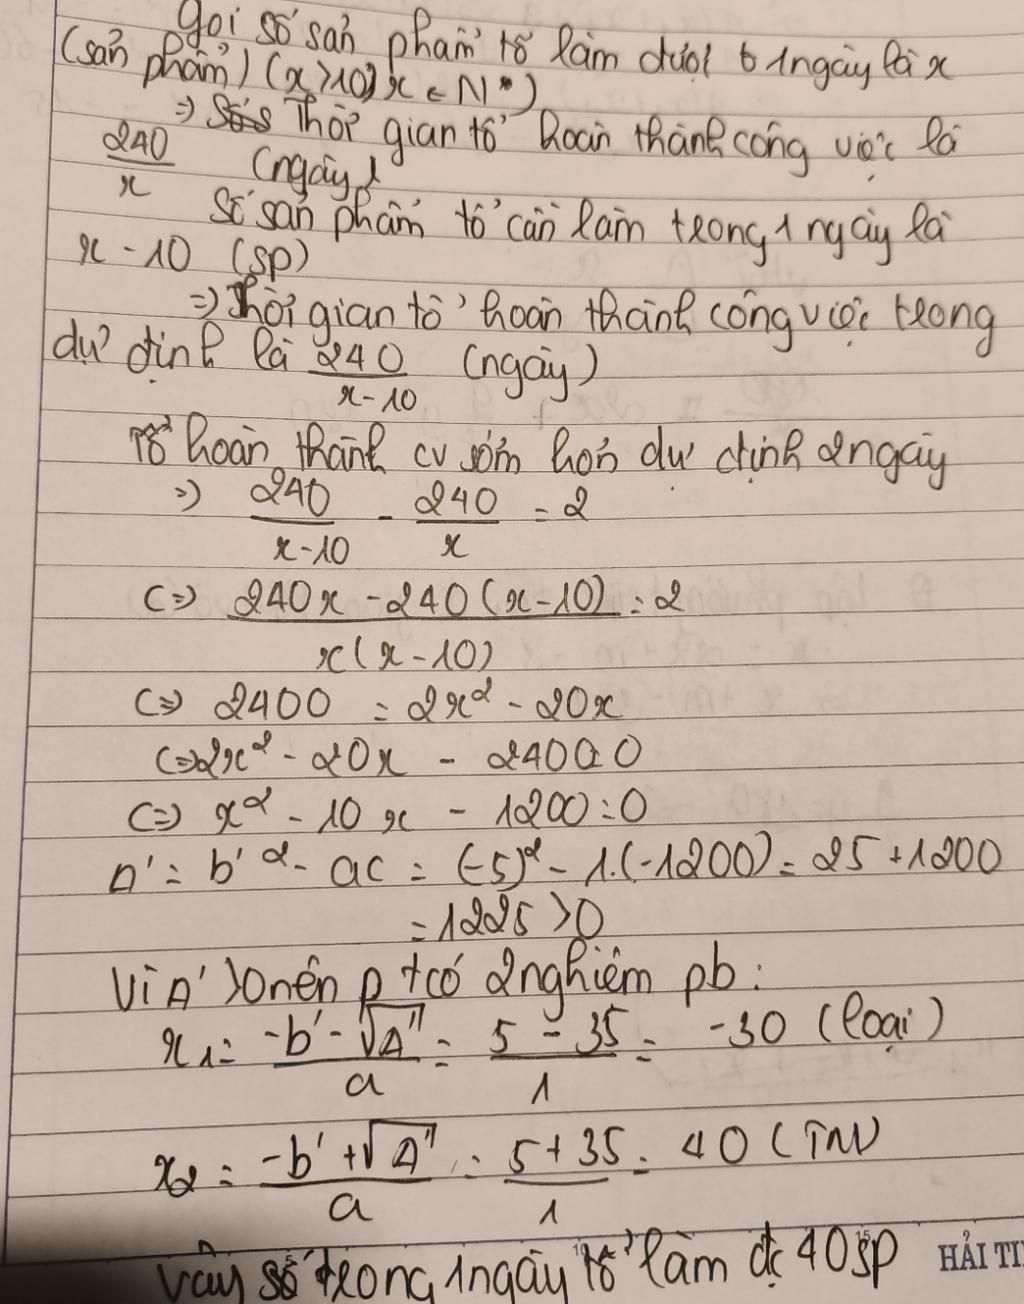 Gọi số sản phẩm tổ làm được 1 ngày là x
(sản phẩm) (x>10, x ∈ N*)
=> Thời gian tổ hoàn thành công việc là
240/x (ngày)
Số sản phẩm tổ cần làm trong 1 ngày là
x - 10 (sp)
=> Thời gian tổ hoàn thành công việc trong
dự định là 240/(x-10) (ngày)
Tổ hoàn thành cv sớm hơn dự định 2 ngày
=> 240/(x-10) - 240/x = 2
<=> (240x - 240(x-10))/(x(x-10)) = 2
<=> 2400 = 2x² - 20x
<=> 2x² - 20x - 2400 = 0
<=> x² - 10x - 1200 = 0
Δ' = b'² - ac = (-5)² - 1.(-1200) = 25 + 1200
= 1225 > 0
Vì Δ' > 0 nên pt có 2 nghiệm pb:
x₁ = (-b' - √Δ')/a = (5 - 35)/1 = -30 (loại)
x₂ = (-b' + √Δ')/a = (5 + 35)/1 = 40 (TM)
Vậy số trong 1 ngày tổ làm đc 40 sp
HẢI TI